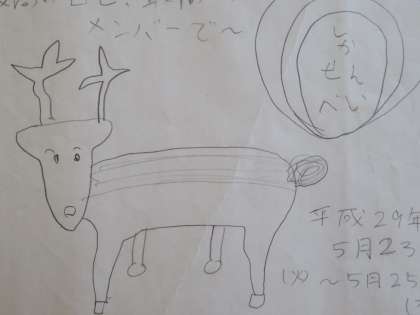 メンバーで〜
しか
せん
べい
平成29年
5月23
(火)〜5月25